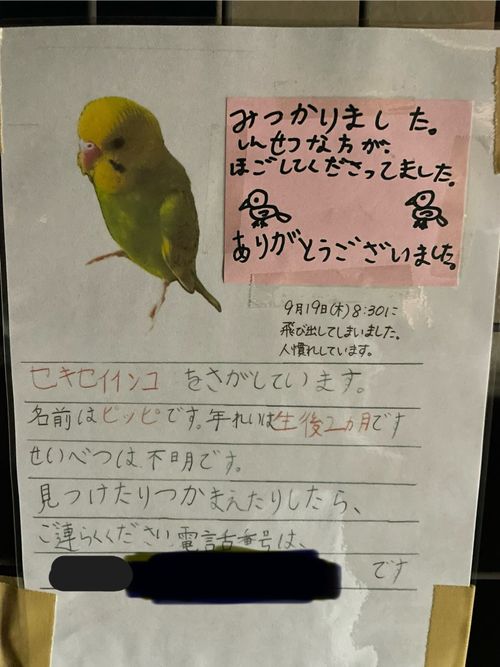 みつかりました。
しんせつな方が、
ほごしてくださってました。
ありがとうございました。
9月19日(木)8:30に
飛び出してしまいました。
人慣れしています。
セキセイインコ をさがしています。
名前はピッピです。年れいは生後2ヵ月です
せいべつは不明です。
見つけたりつかまえたりしたら、
ご連らくください 電話番号は、
です